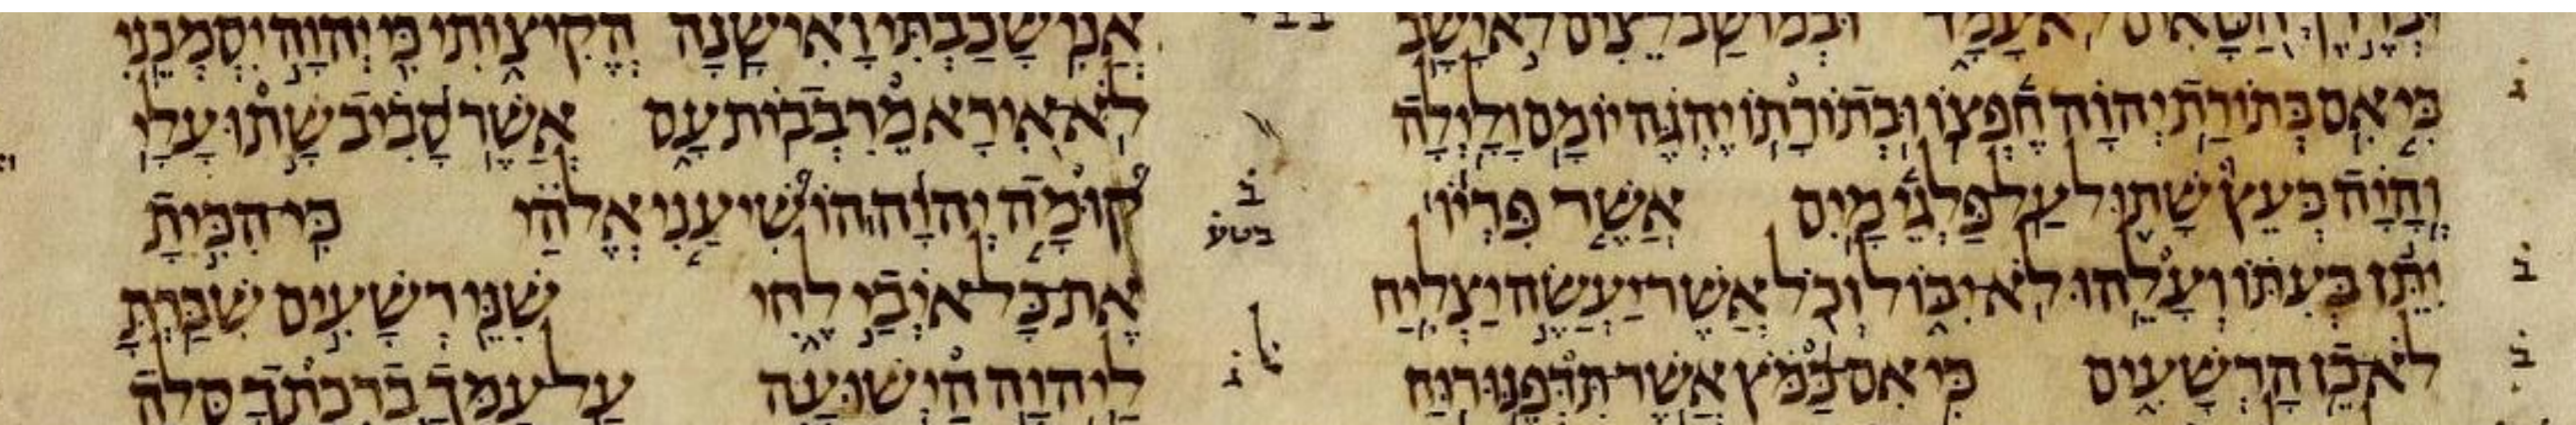 וּבְדֶרֶךְ חַטָּאִים לֹא עָמָד וּבְמוֹשַׁב לֵצִים לֹא יָשָׁב
כִּי אִם בְּתוֹרַת יְהוָה חֶפְצוֹ וּבְתוֹרָתוֹ יֶהְגֶּה יוֹמָם וָלָיְלָה
וְהָיָה כְּעֵץ שָׁתוּל עַל פַּלְגֵי מָיִם אֲשֶׁר פִּרְיוֹ
יִתֵּן בְּעִתּוֹ וְעָלֵהוּ לֹא יִבּוֹל וְכֹל אֲשֶׁר יַעֲשֶׂה יַצְלִיחַ
לֹא כֵן הָרְשָׁעִים כִּי אִם כַּמֹּץ אֲשֶׁר תִּדְּפֶנּוּ רוּחַ
ג
ב
ב
ב
בטע
ג
אֲנִי שָׁכַבְתִּי וָאִישָׁנָה הֱקִיצוֹתִי כִּי יְהוָה יִסְמְכֵנִי
לֹא אִירָא מֵרִבְבוֹת עָם אֲשֶׁר סָבִיב שָׁתוּ עָלָי
קוּמָה יְהוָה הוֹשִׁיעֵנִי אֱלֹהַי כִּי הִכִּיתָ
אֶת כָּל אֹיְבַי לֶחִי שִׁנֵּי רְשָׁעִים שִׁבַּרְתָּ
לַיהוָה הַיְשׁוּעָה עַל עַמְּךָ בִרְכָתֶךָ סֶּלָה